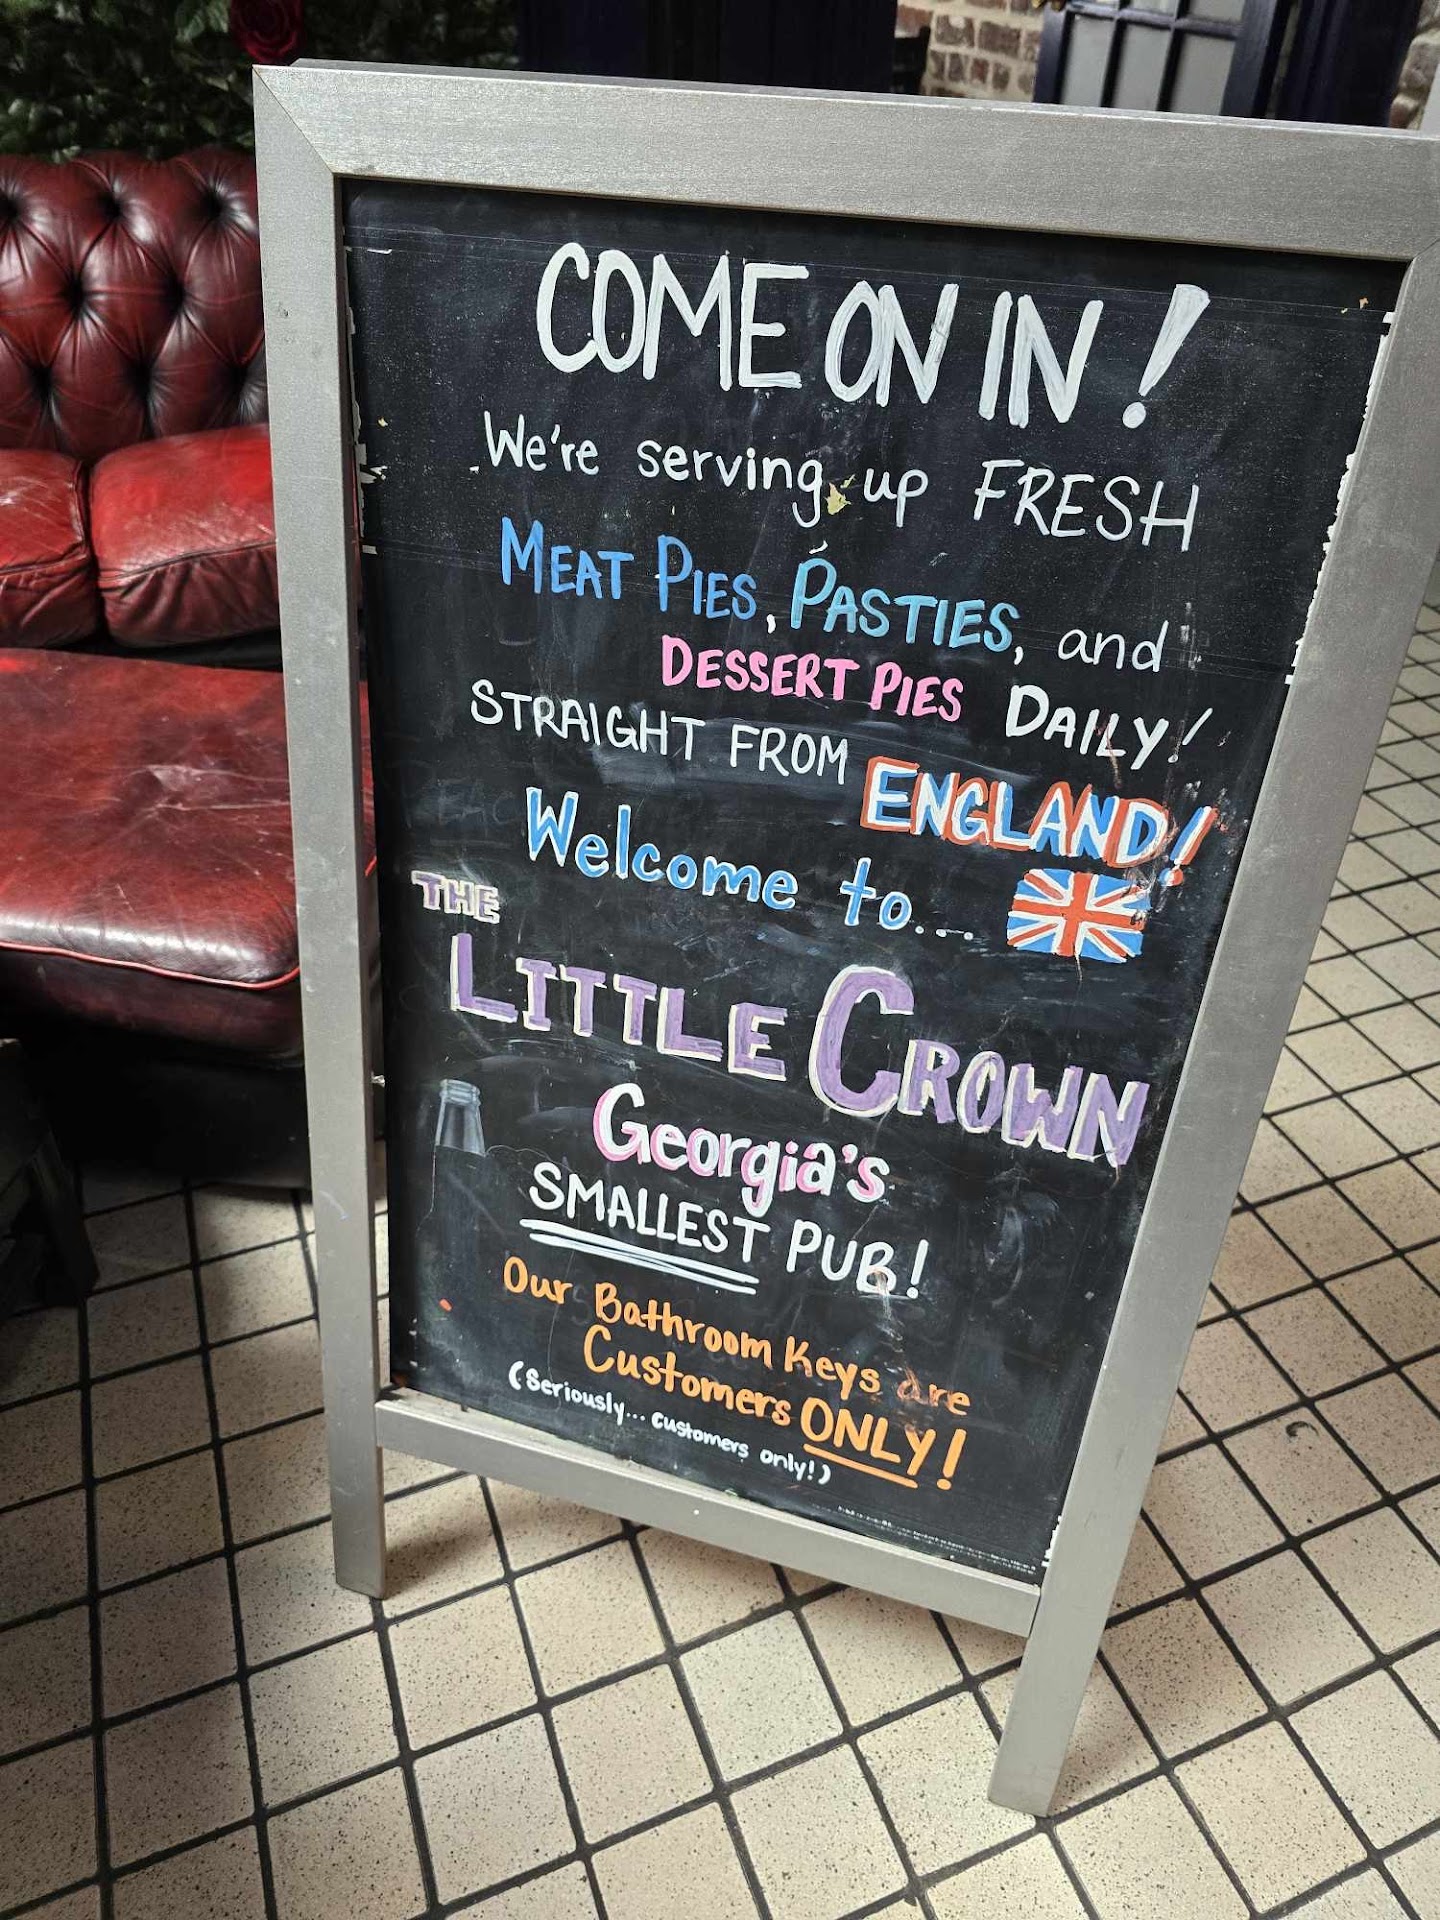 COME ON IN!
We're serving up FRESH
MEAT PIES, PASTIES, and
DESSERT PIES DAILY!
STRAIGHT FROM ENGLAND!
Welcome to...
THE
LITTLE CROWN
Georgia's
SMALLEST PUB!
Our Bathroom Keys are
Customers ONLY!
(Seriously... customers only!)